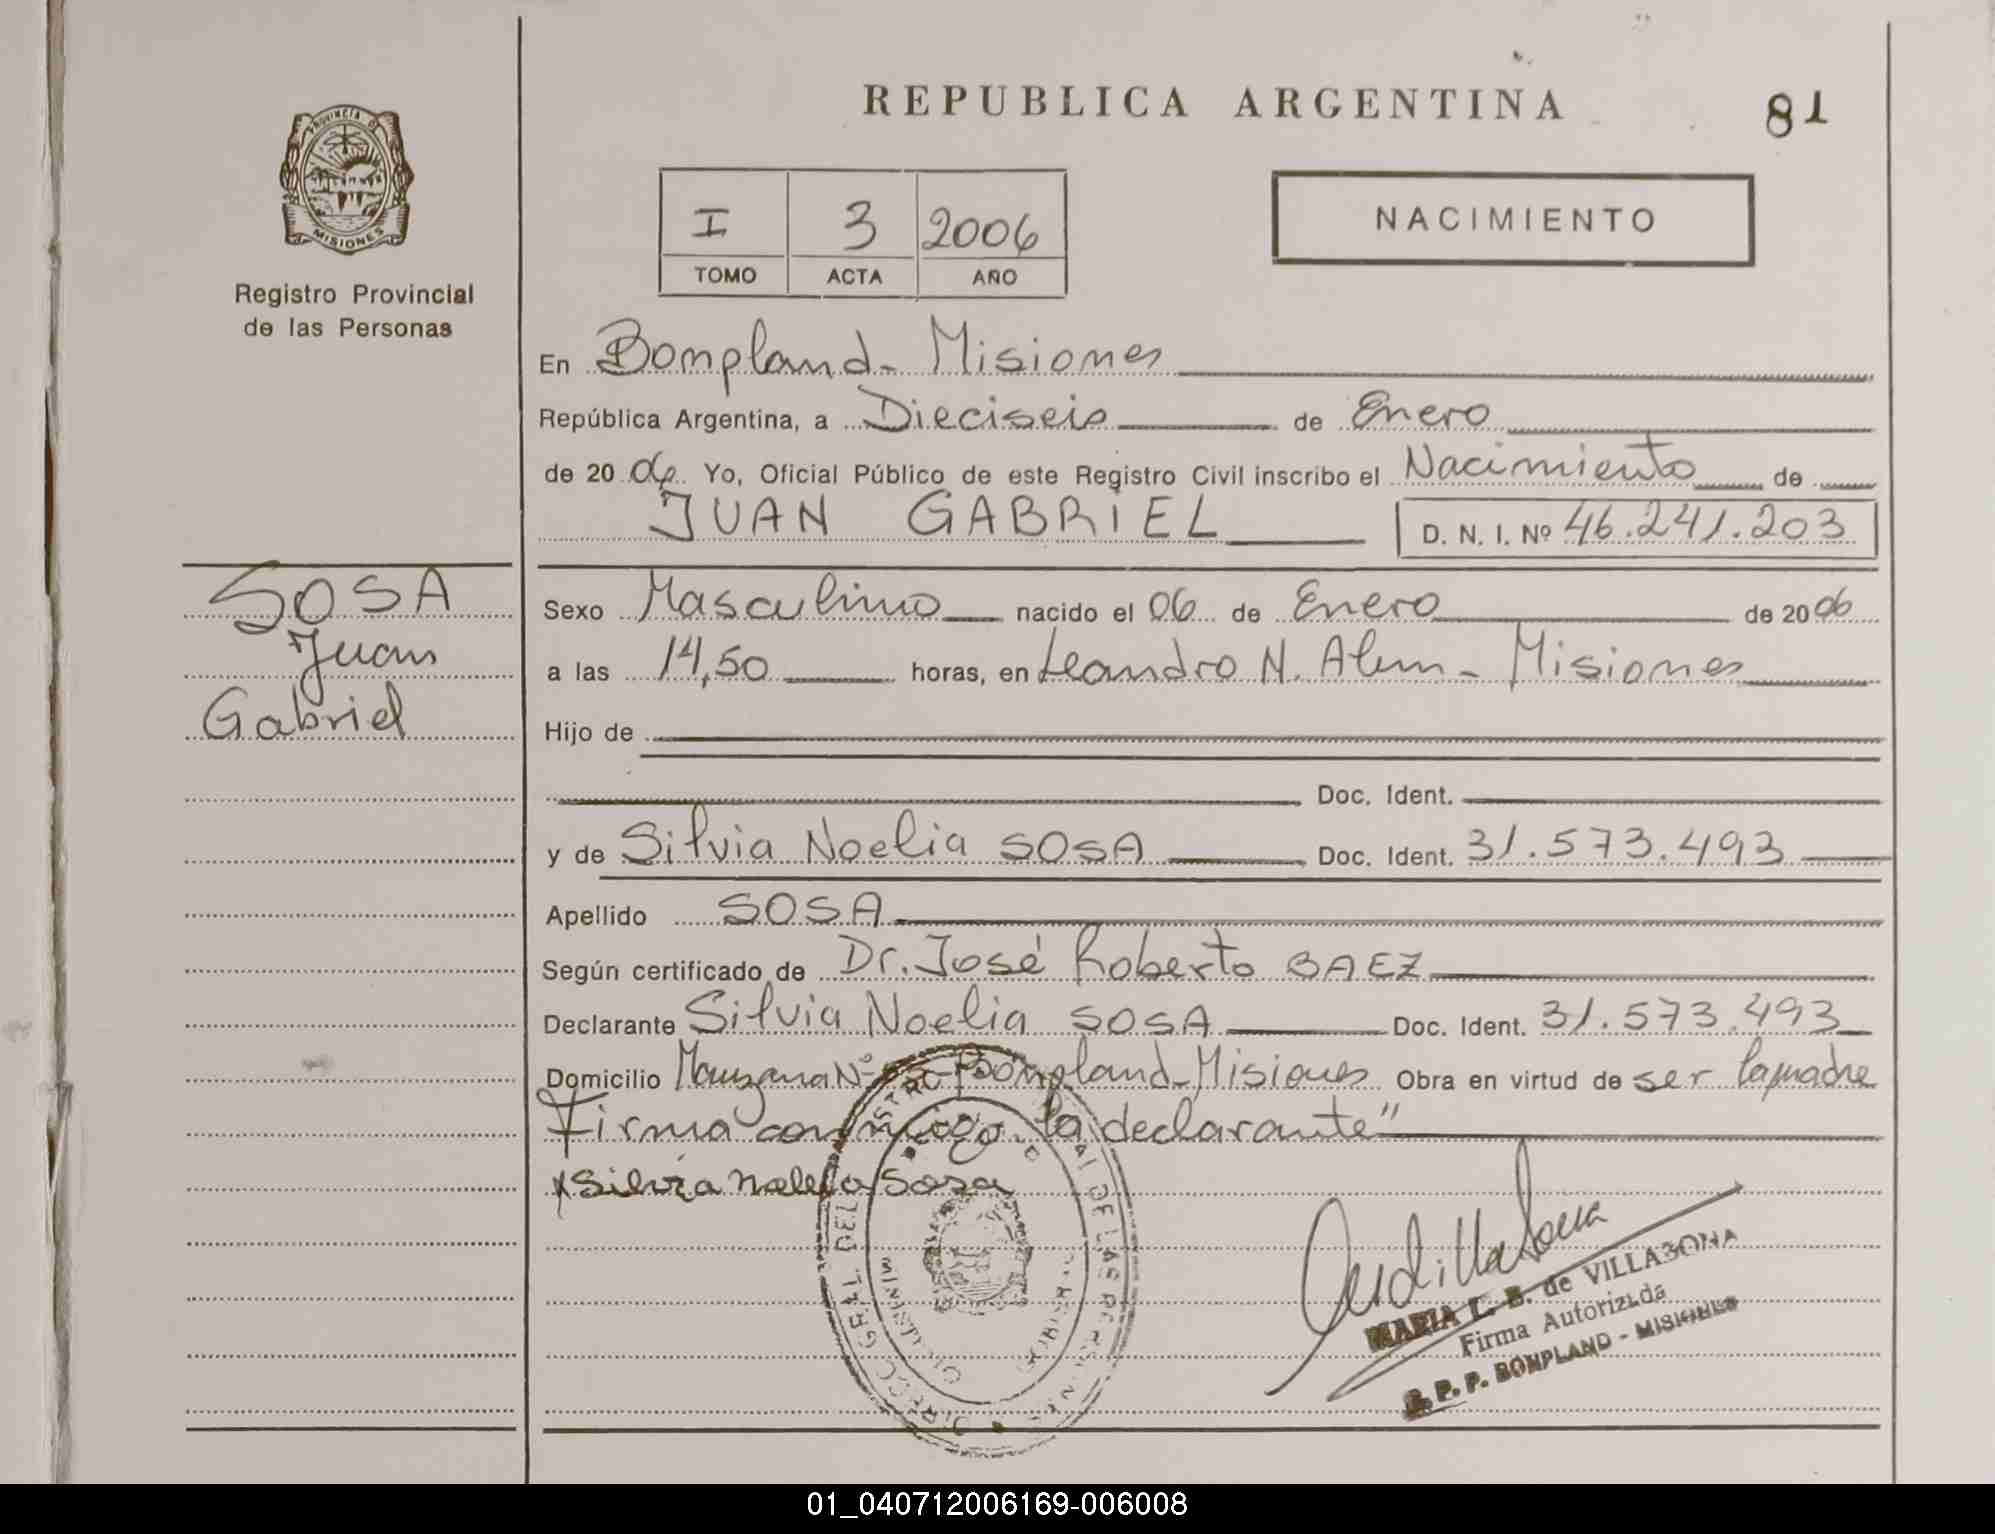 REPUBLICA ARGENTINA
81
PROVINCIA DE
MISIONES
Registro Provincial
de las Personas
I 3 2006
TOMO ACTA AÑO
NACIMIENTO
En Bompland - Misiones
República Argentina, a Dieciseis de Enero
de 20 06 Yo, Oficial Público de este Registro Civil inscribo el Nacimiento de
JUAN GABRIEL D. N. I. Nº 46.241.203
SOSA
Juan
Gabriel
Sexo Masculino nacido el 06 de Enero de 20 06
a las 14,50 horas, en Leandro N. Alem - Misiones
Hijo de
Doc. Ident.
y de Silvia Noelia SOSA Doc. Ident. 31.573.493
Apellido SOSA
Según certificado de Dr. José Roberto BAEZ
Declarante Silvia Noelia SOSA Doc. Ident. 31.573.493
Domicilio Manzana Nº Bompland - Misiones Obra en virtud de ser la madre
Firma conmigo la declarante"
x Silvia Sosa
DIRECC. GRAL. DEL REGISTRO DE LAS PERSONAS
MARIA E. B. de VILLABONA
Firma Autorizada
R. P. P. BONPLAND - MISIONES
01_040712006169-006008